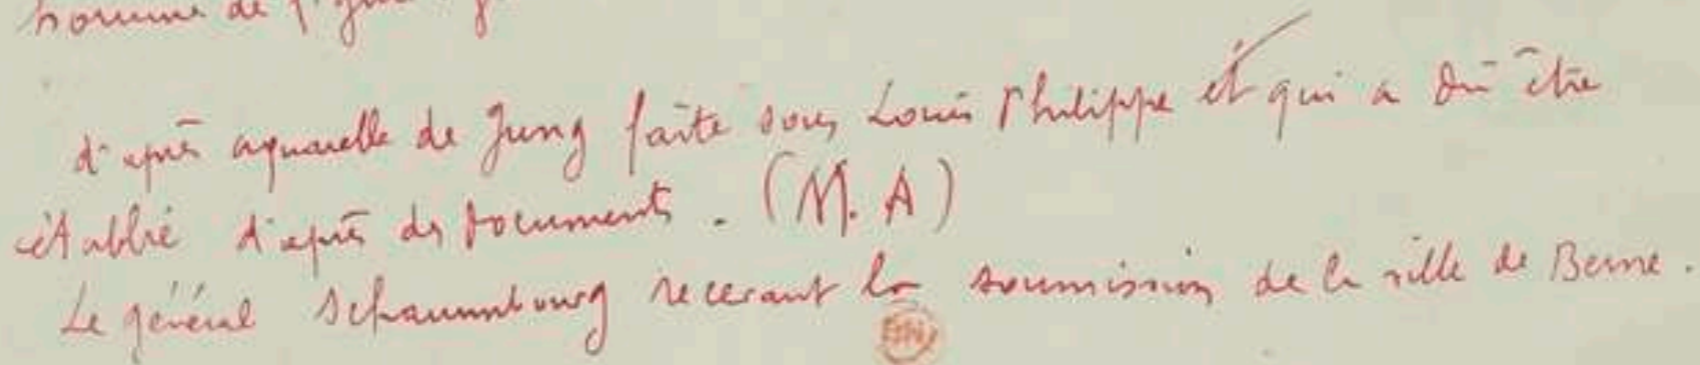 homme de
d'après aquarelle de Jung faite sous Louis Philippe et qui a dû être
établie d'après des documents. (M. A)
Le général Schaumbourg recevant la soumission de la ville de Berne.
BN